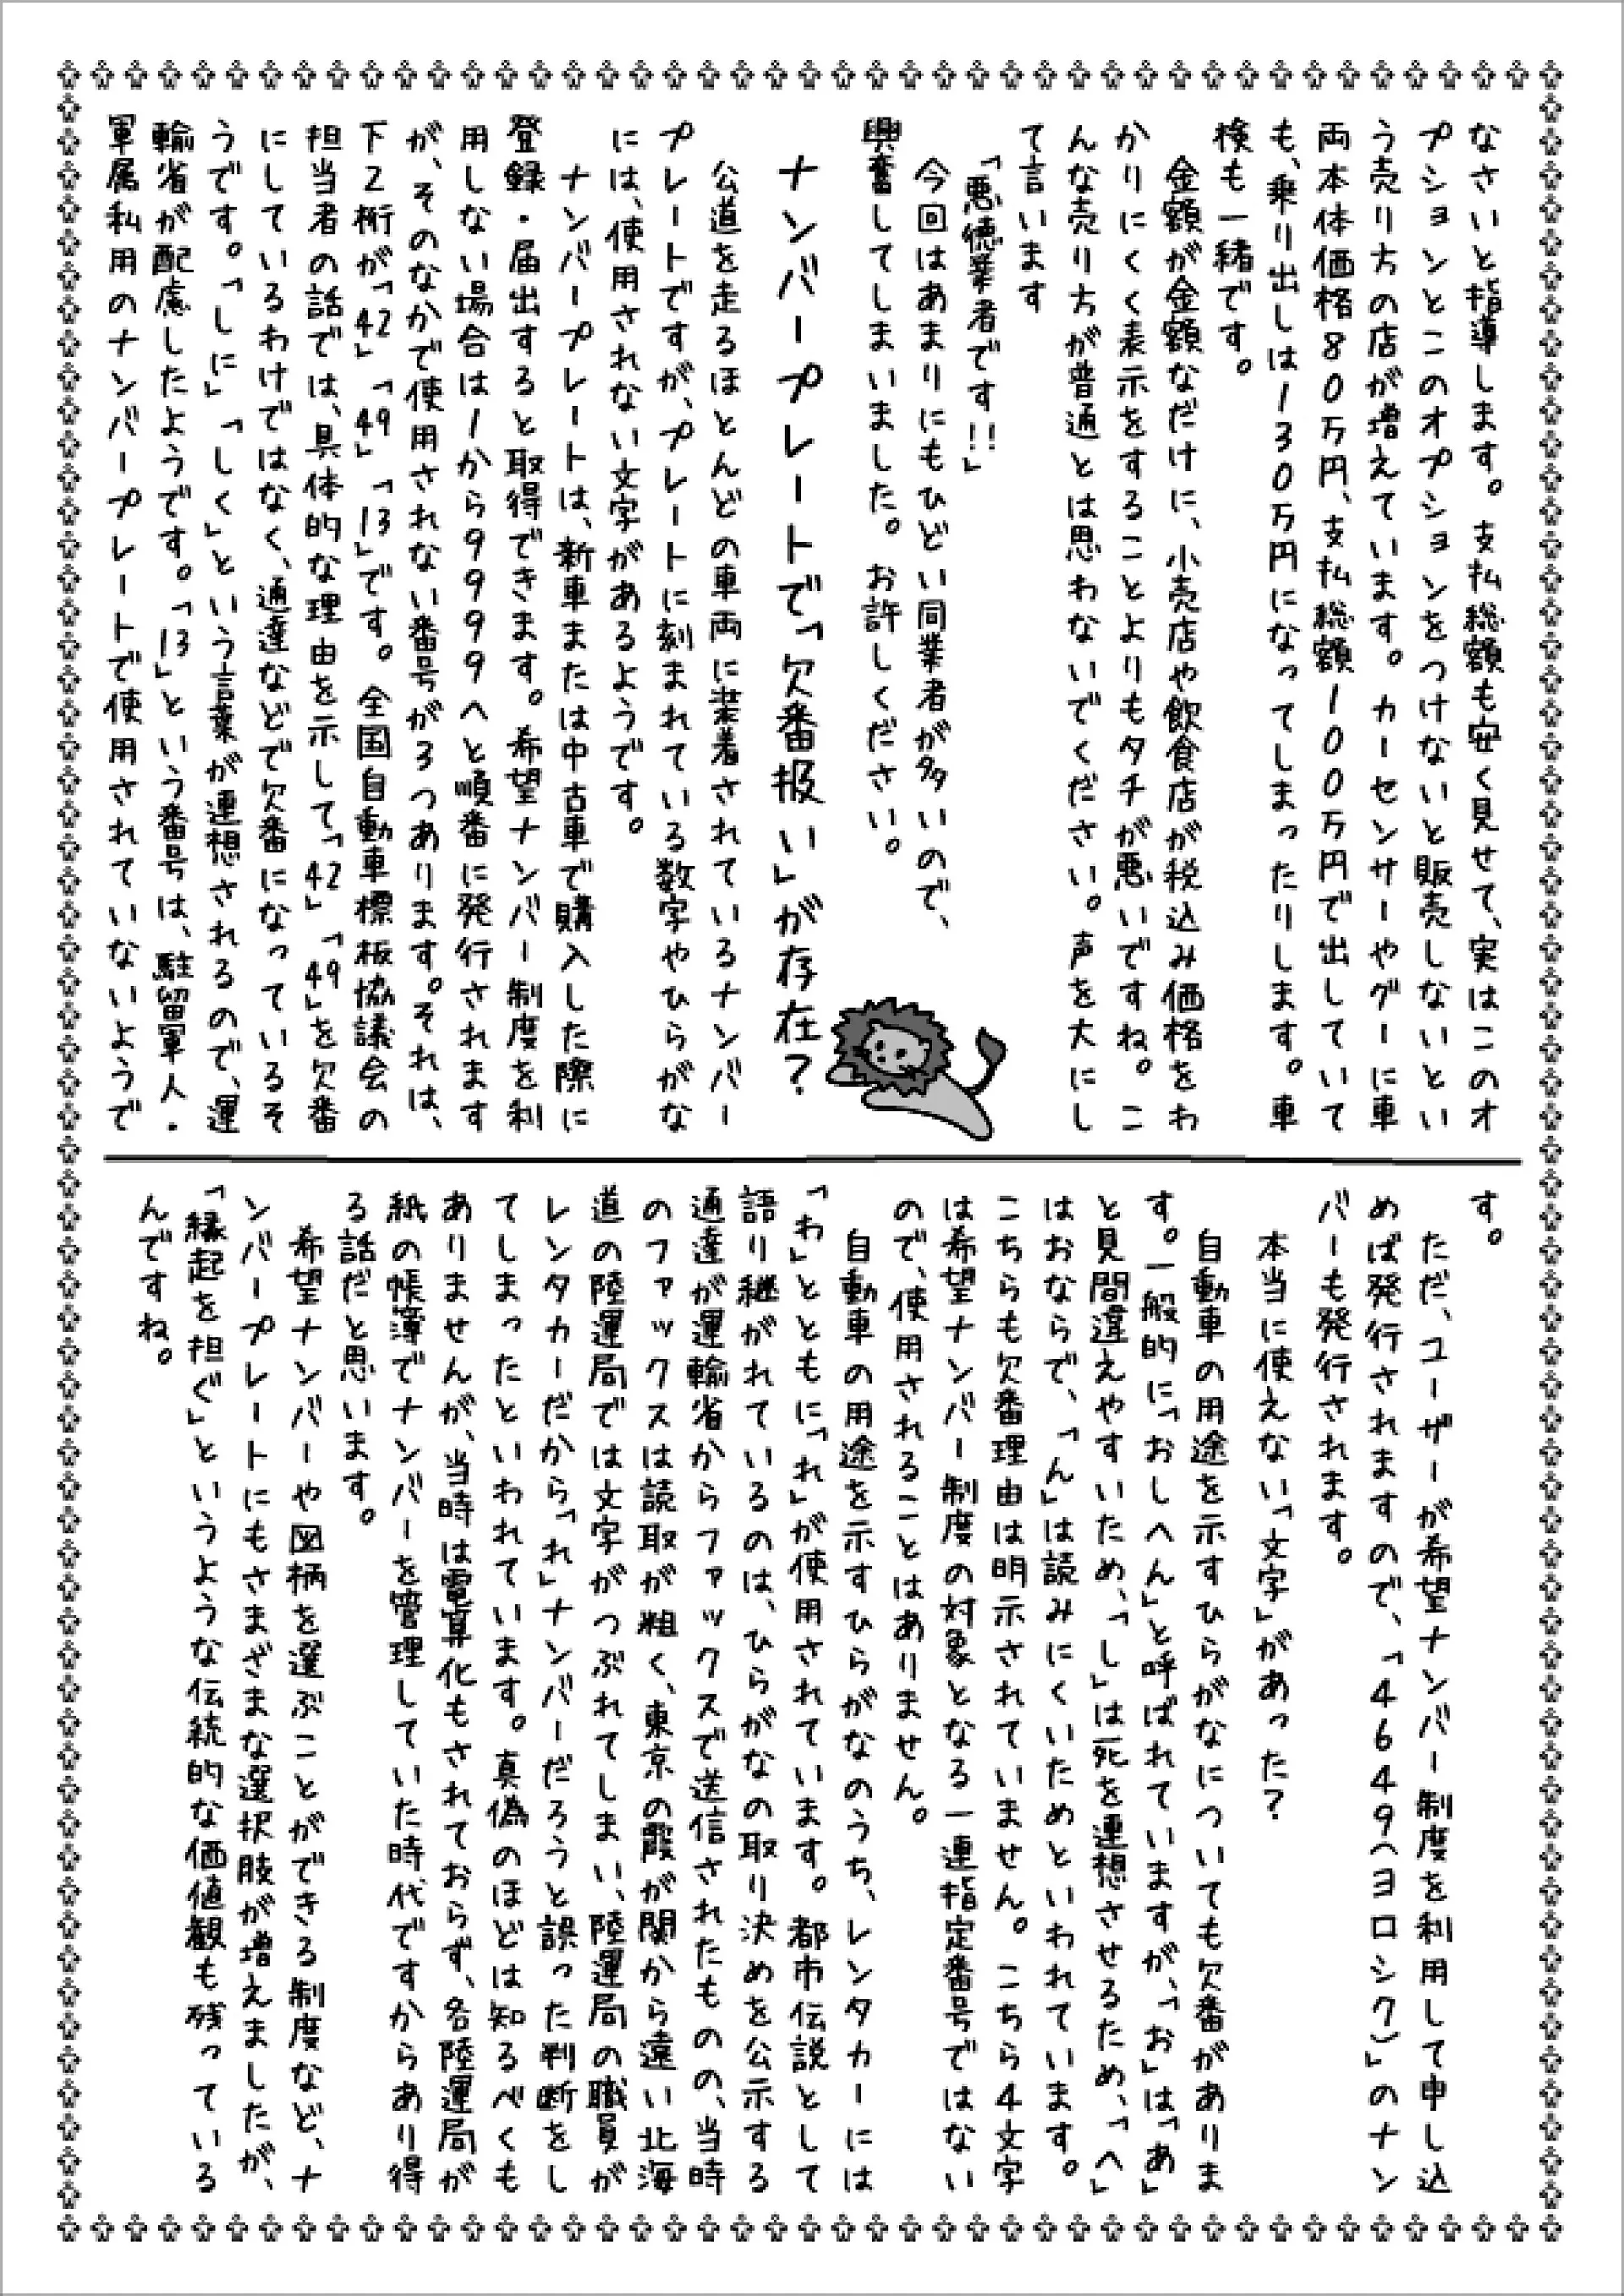 なさいと指導します。支払総額も安く見せて、実はこのオ
プションとこのオプションをつけないと販売しないとい
う売り方の店が増えています。カーセンサーやグーに車
両本体価格80万円、支払総額100万円で出していて
も、乗り出しは130万円になってしまったりします。車
検も一緒です。
金額が金額なだけに、小売店や飲食店が税込み価格をわ
かりにくく表示をすることよりもタチが悪いですね。こ
んな売り方が普通とは思わないでください。声を大にし
て言います
「悪徳業者です!!」
今回はあまりにもひどい同業者が多いので、
興奮してしまいました。お許しください。
ナンバープレートで「欠番扱い」が存在?
公道を走るほとんどの車両に装着されているナンバー
プレートですが、プレートに刻まれている数字やひらがな
には、使用されない文字があるようです。
ナンバープレートは、新車または中古車で購入した際に
登録・届出すると取得できます。希望ナンバー制度を利
用しない場合は1から9999へと順番に発行されます
が、そのなかで使用されない番号が3つあります。それは、
下2桁が「42」「49」「13」です。全国自動車標板協議会の
担当者の話では、具体的な理由を示して「42」「49」を欠番
にしているわけではなく、通達などで欠番になっているそ
うです。「しに」「しく」という言葉が連想されるので、運
輸省が配慮したようです。「13」という番号は、駐留軍人・
軍属私用のナンバープレートで使用されていないようで
す。
ただ、ユーザーが希望ナンバー制度を利用して申し込
めば発行されますので、「4649(ヨロシク)」のナン
バーも発行されます。
本当に使えない「文字」があった?
自動車の用途を示すひらがなについても欠番がありま
す。一般的に「おしへん」と呼ばれていますが、「お」は「あ」
と見間違えやすいため、「し」は死を連想させるため、「へ」
はおならで、「ん」は読みにくいためといわれています。
こちらも欠番理由は明示されていません。こちら4文字
は希望ナンバー制度の対象となる一連指定番号ではない
ので、使用されることはありません。
自動車の用途を示すひらがなのうち、レンタカーには
「わ」とともに「れ」が使用されています。都市伝説として
語り継がれているのは、ひらがなの取り決めを公示する
通達が運輸省からファックスで送信されたものの、当時
のファックスは読取が粗く、東京の霞が関から遠い北海
道の陸運局では文字がつぶれてしまい、陸運局の職員が
レンタカーだから「れ」ナンバーだろうと誤った判断をし
てしまったといわれています。真偽のほどは知るべくも
ありませんが、当時は電算化もされておらず、各陸運局が
紙の帳簿でナンバーを管理していた時代ですからあり得
る話だと思います。
希望ナンバーや図柄を選ぶことができる制度など、ナ
ンバープレートにもさまざまな選択肢が増えましたが、
「縁起を担ぐ」というような伝統的な価値観も残っている
んですね。